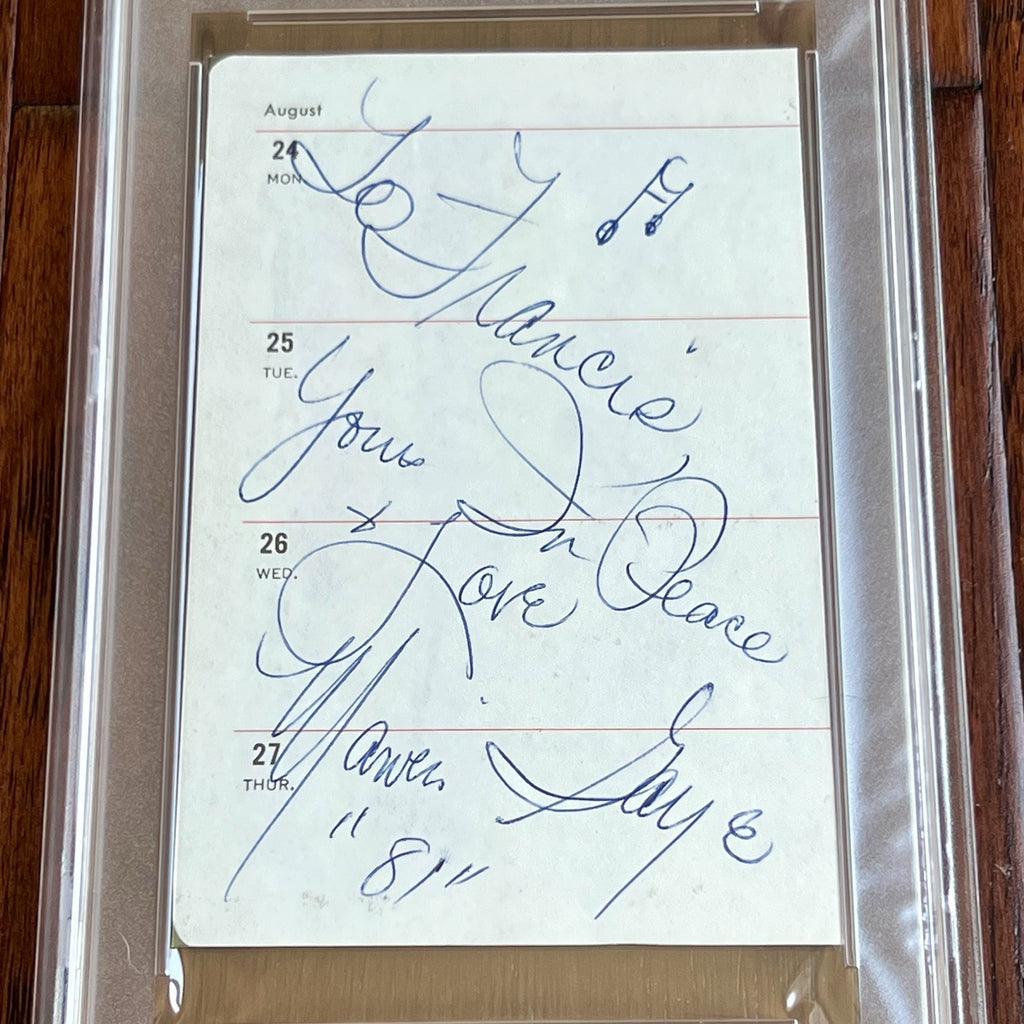 August
24
MON.
To Francis
25
TUE.
Yours In Peace
26
WED.
+ Love
27
THUR.
Marvin Gaye
"81"